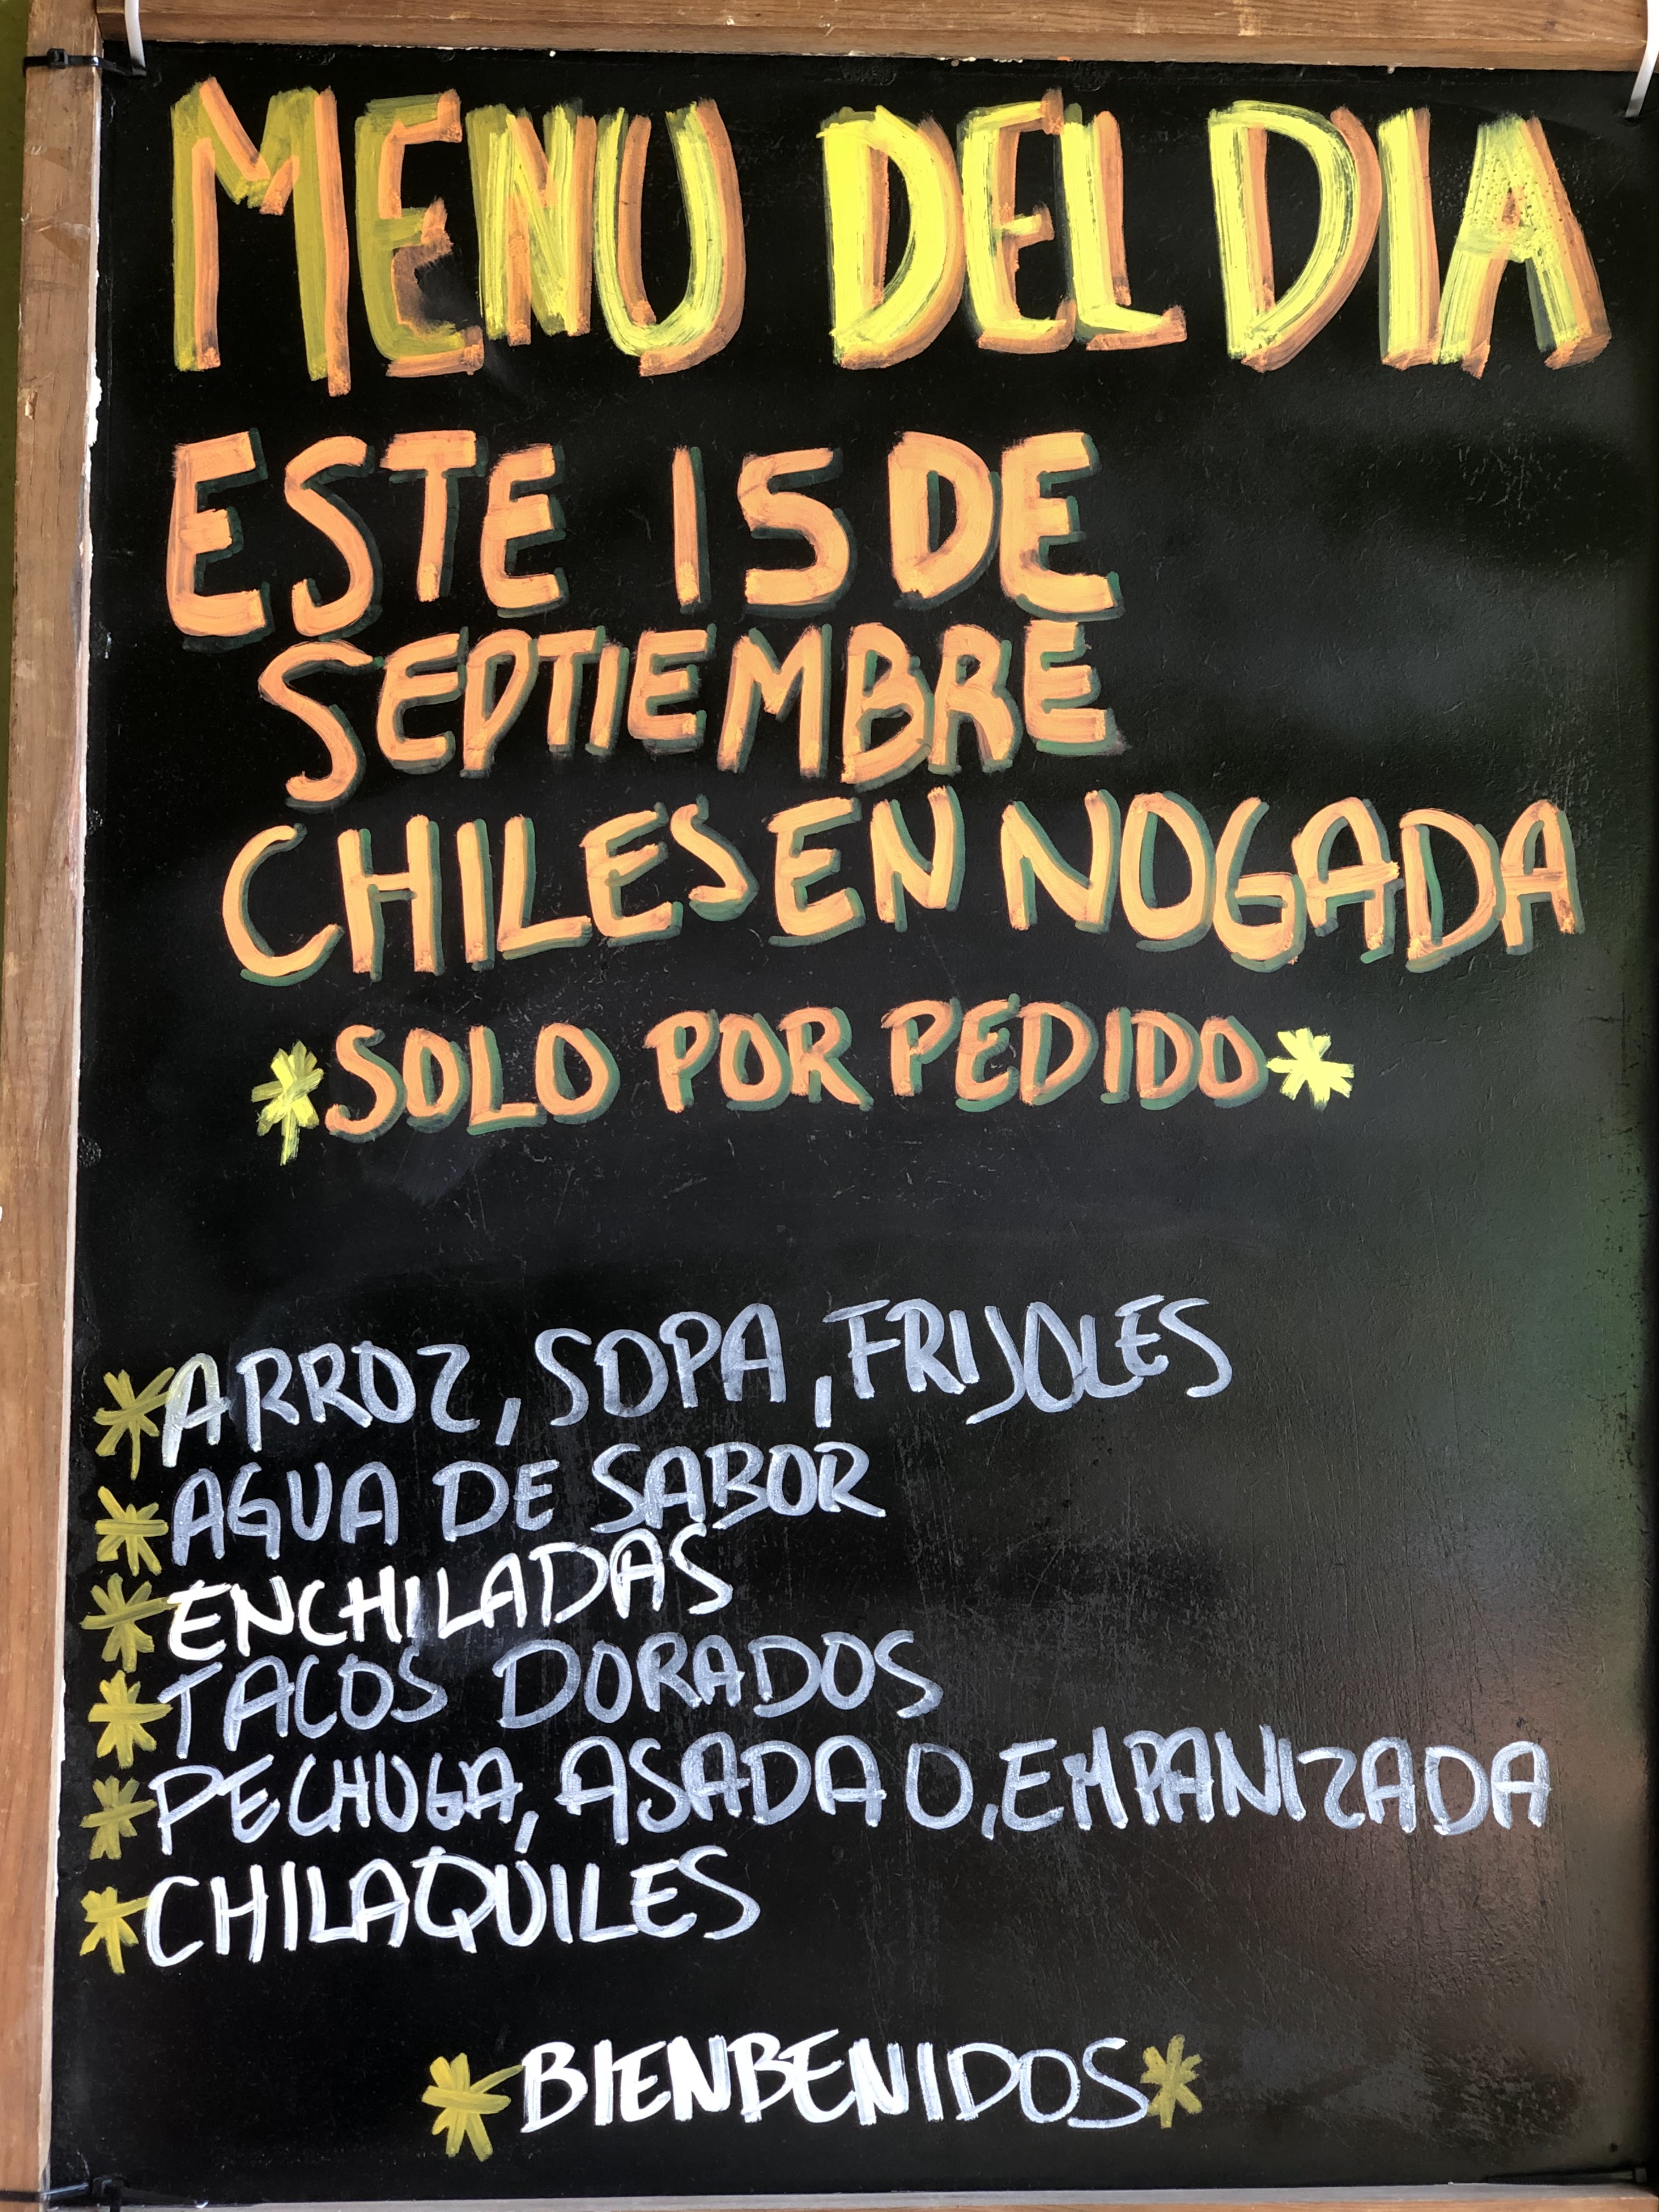 MENU DEL DIA
ESTE 15 DE
SEPTIEMBRE
CHILES EN NOGADA
*SOLO POR PEDIDO*
*ARROZ, SOPA, FRIJOLES
*AGUA DE SABOR
*ENCHILADAS
*TACOS DORADOS
*PECHUGA, ASADA O, EMPANIZADA
*CHILAQUILES
*BIENBENIDOS*